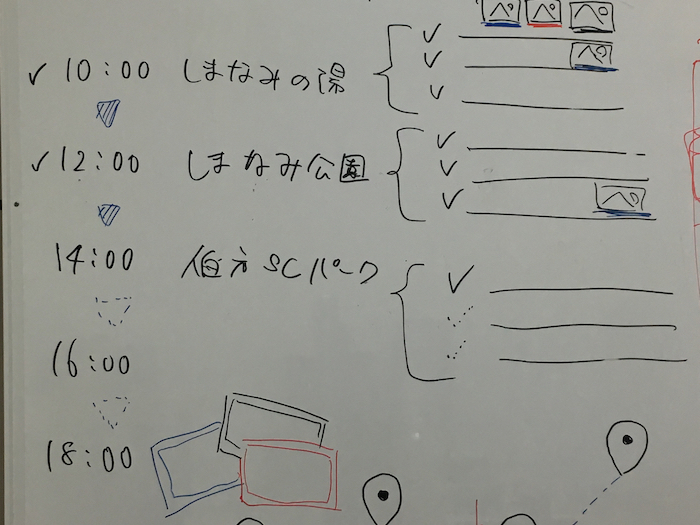 ペ ペ ペ
✓ 10:00 しまなみの湯 ✓
✓ ペ
✓
✓ 12:00 しまなみ公園 ✓
✓
✓ ペ
14:00 伯方SCパーク ✓
✓
✓
16:00
18:00